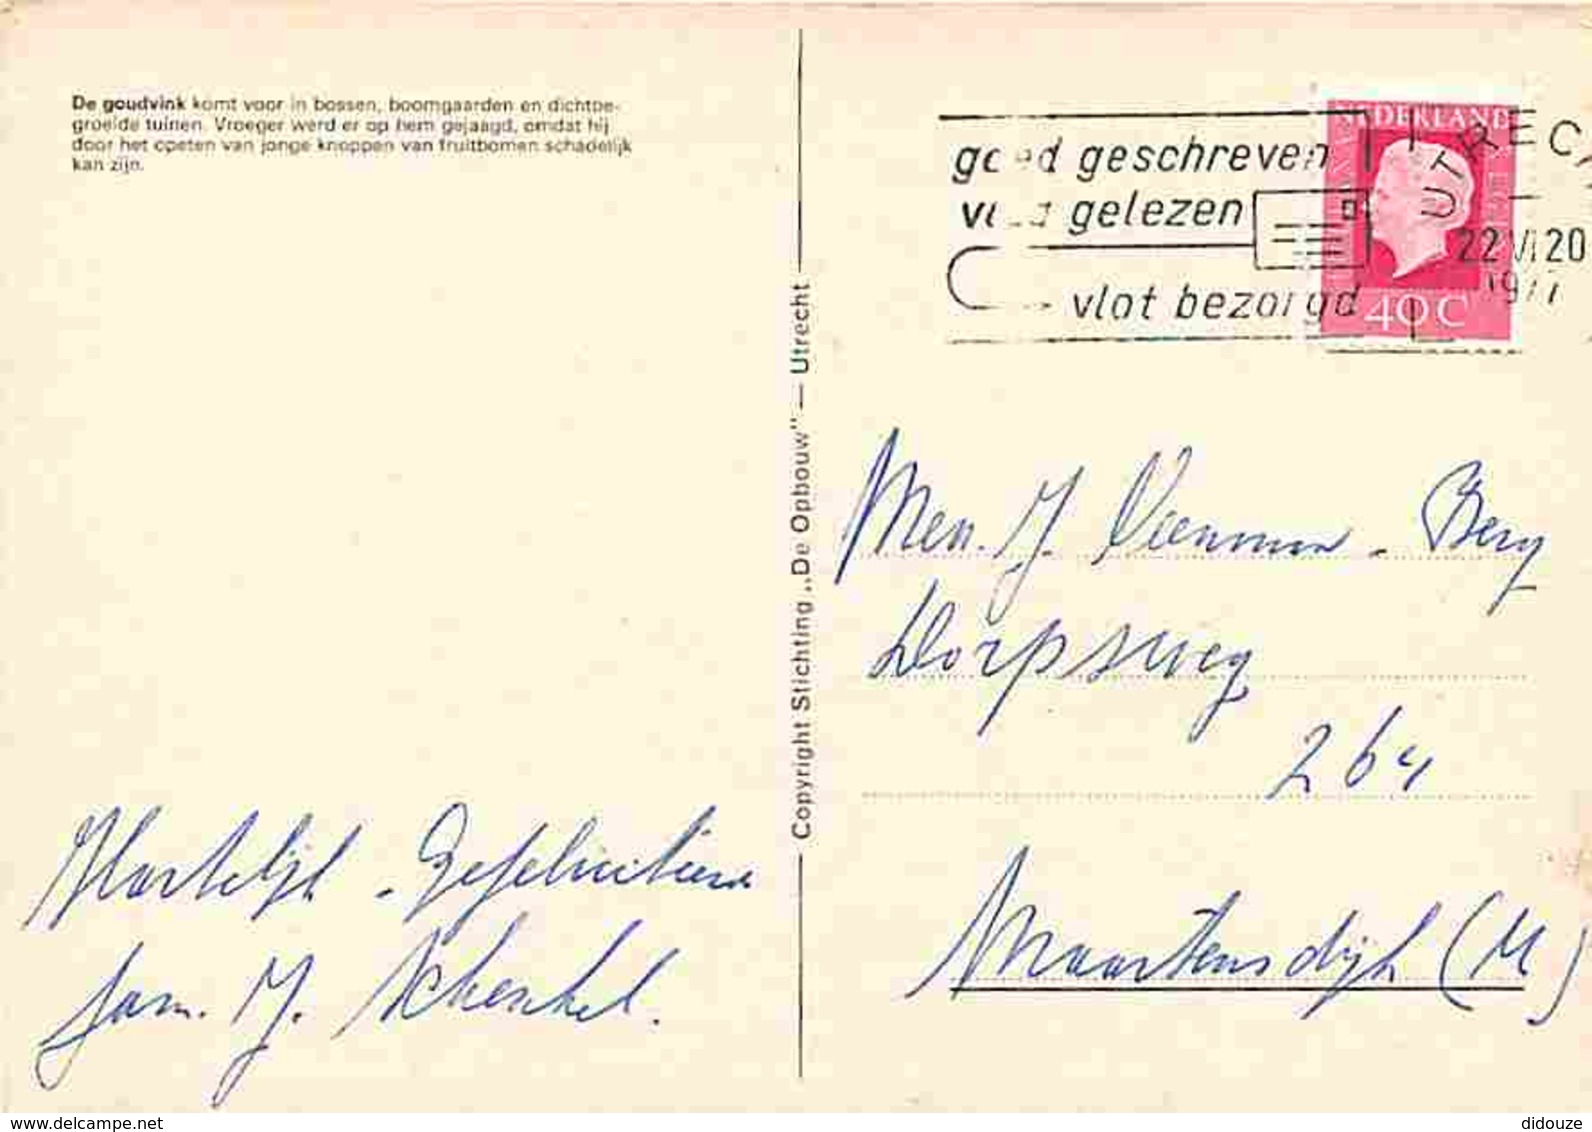 De goudvink komt voor in bossen, boomgaarden en dichtbe-
groeide tuinen. Vroeger werd er op hem gejaagd, omdat hij
door het opeten van jonge knoppen van fruitbomen schadelijk
kan zijn.
Hartelijk - Gefeliciteerd
fam. J. Schenkel.
Copyright Stichting „De Opbouw" — Utrecht
goed geschreven
gelezen
vlot bezorgd
NEDERLAND
40 C
UTRECH
22 VI 20
1977
Mev. J. Veenman - Berg
Dorpsweg
264
Maartensdijk (U)
www.delcampe.net
didouze